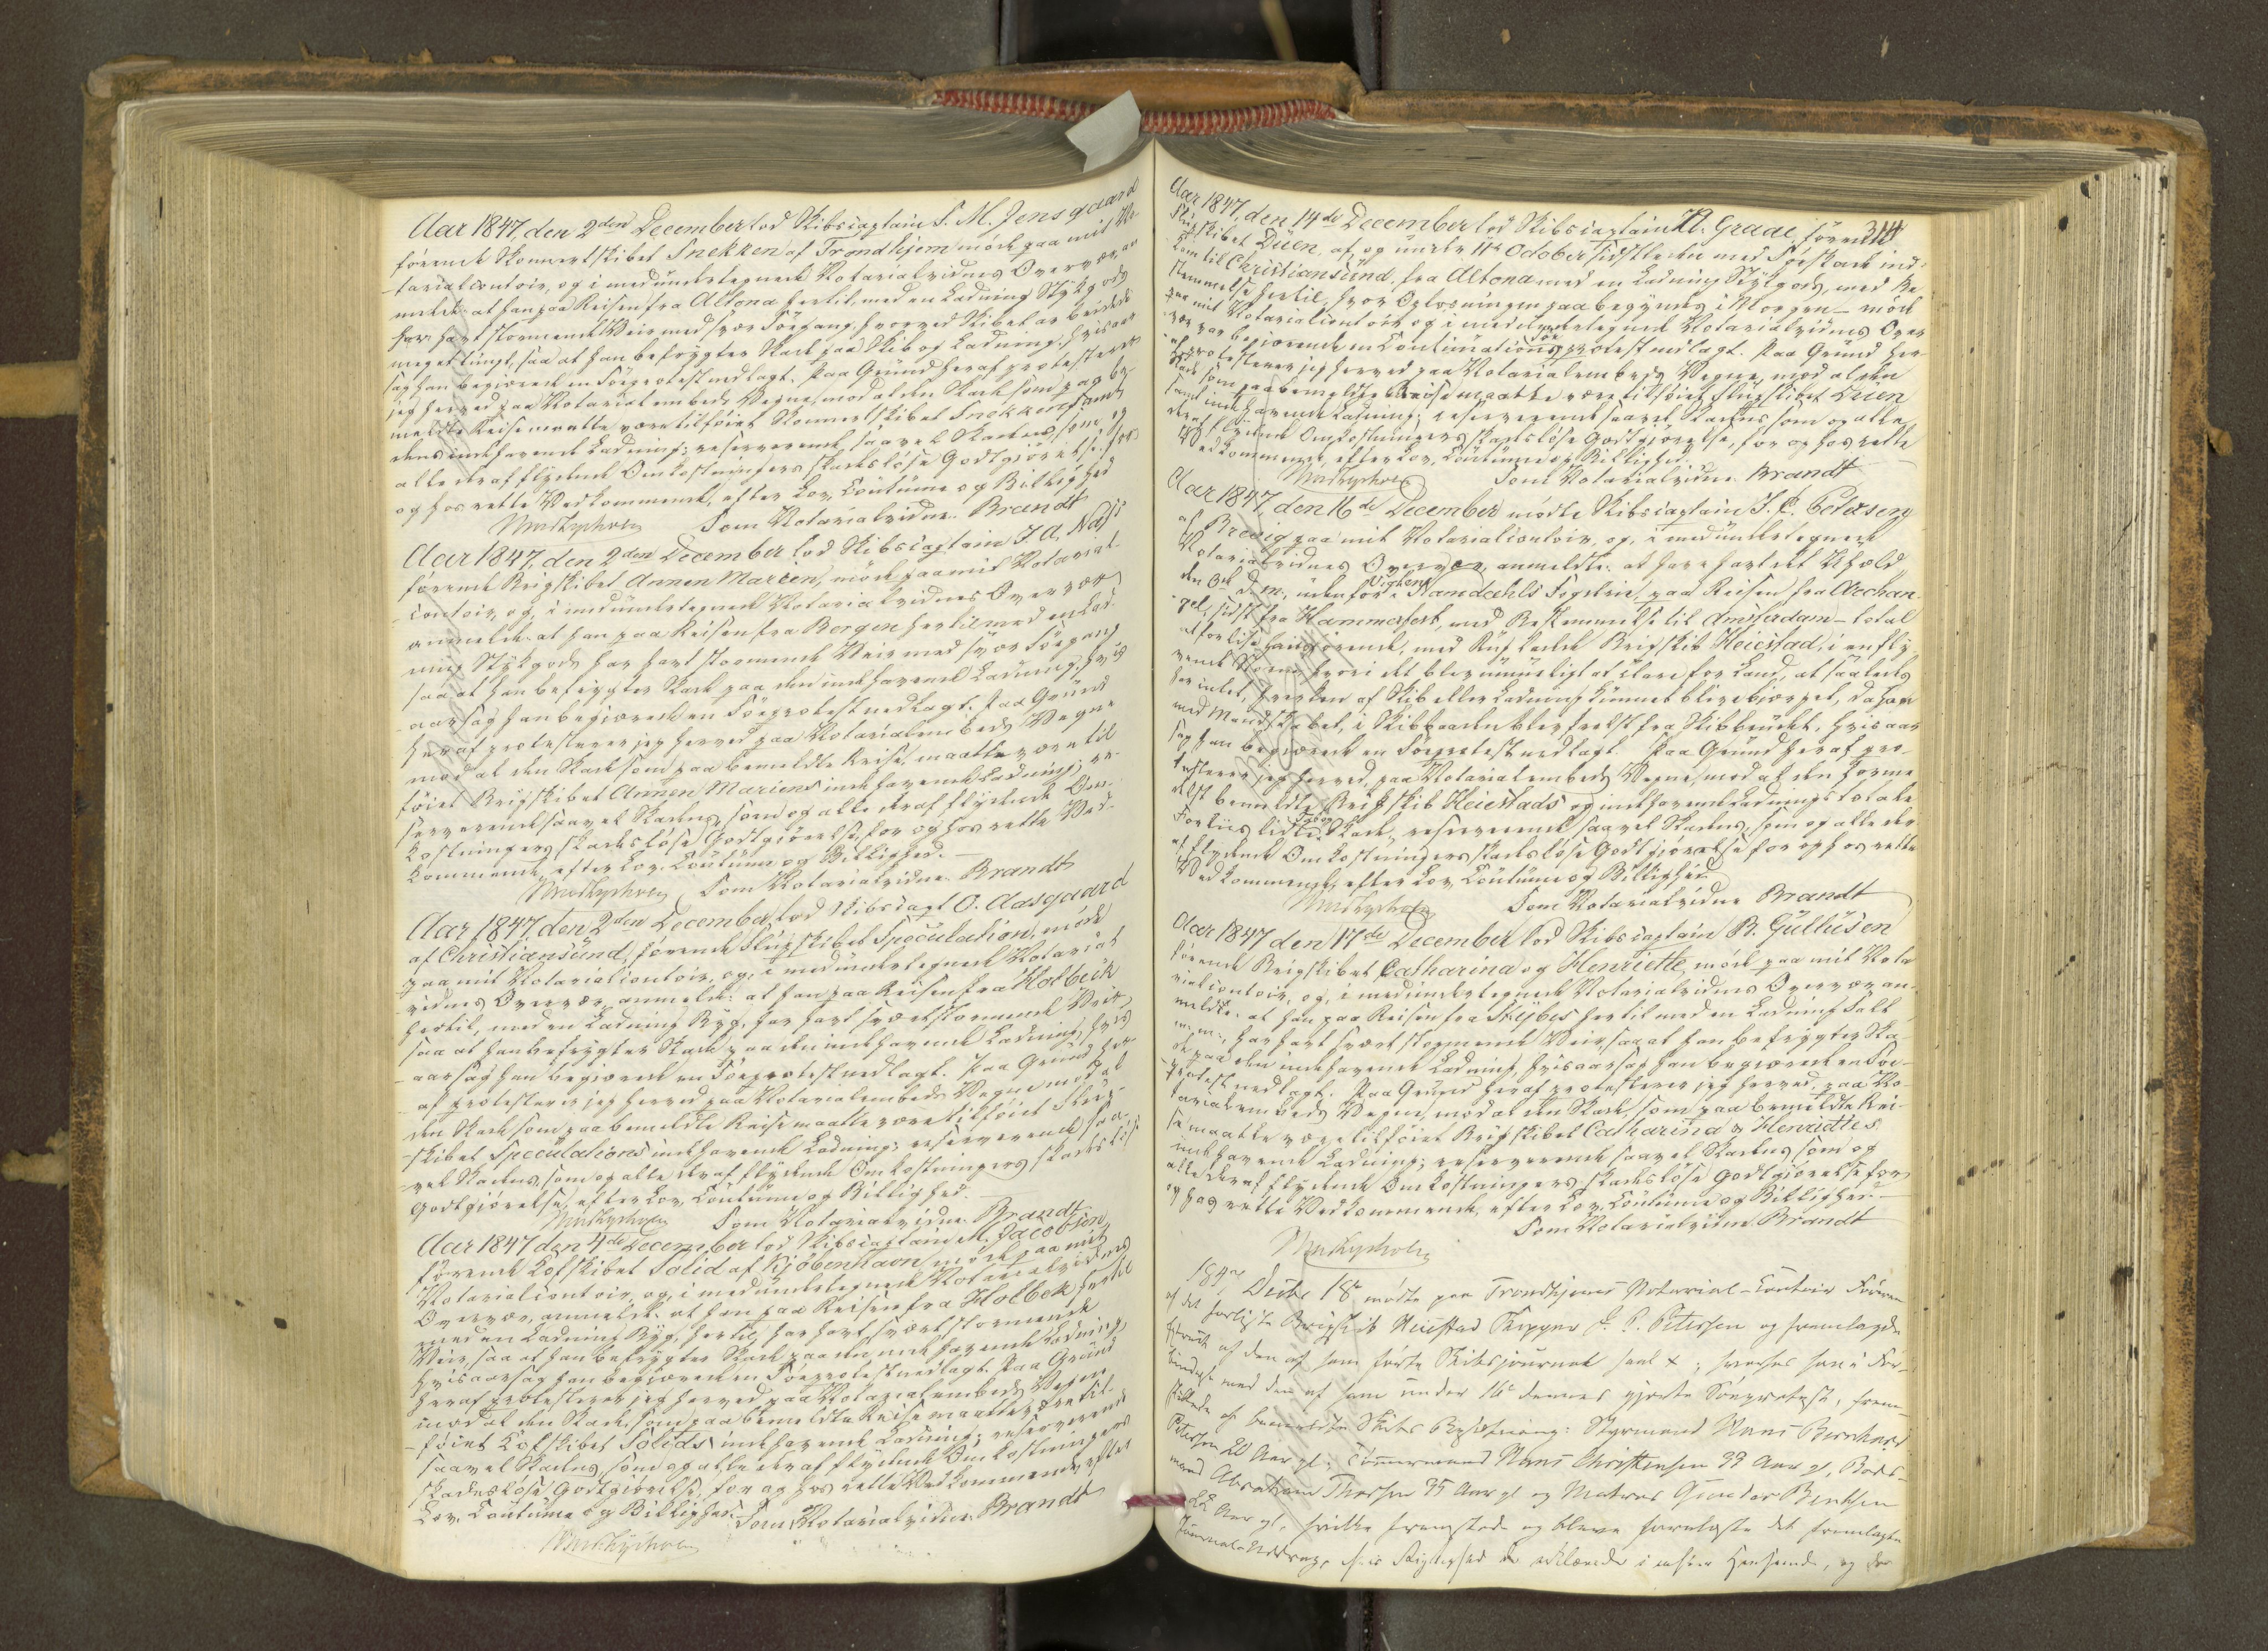 Aar 1847, den 2den December lod Skibscaptain S. M. Jensgaard
førende Skonnertskibet Snekken af Trondhjem møde paa mit No-
tarialcontoir, og i medundertegnede Notarialvidnes Overvær, an
melde: at han paa Reisen fra Altona hertil, med en Ladning Stykgods
har havt stormende Veir med svær Søegang, hvorved Skibet ar beidede
meget tungt, saa at han befrygter Skade paa Skib og Ladning, hvisaar
sag han begjærede en Søeprotest nedlagt. Paa Grund heraf protesterer
jeg herved paa Notarialembeds Vegne, mod al den Skade som paa be-
meldte Reise maatte være tilføiet Skonnertskibet Snekken samt
dens indehavende Ladning; reserverende saavel Skadens, som og
alle deraf flydende Omkostningers skadesløse Godtgjørelse, for
og hos rette Vedkommende, efter Lov, Coutume og Billighed
Som Notarialvidne. Brandt
Aar 1847, den 2den December lod Skibscaptain J. A. Næss
førende Brigskibet Annen Marien, møde paa mit Notarial-
contoir, og, i medundertegnede Notarialvidnes Overvær
anmelde: at han paa Reisen fra Bergen hertil med en Lad-
ning Stykgods har havt stormende Veir med svær Søegang
saa at han befrygter Skade paa den indehavende Ladning, hvis
aarsag han begjærede en Søeprotest nedlagt. Paa Grund
heraf protesterer jeg herved paa Notarialembeds Vegne
mod al den Skade som paa bemeldte Reise, maatte være til
føiet Brigskibet Annen Mariens indehavende Ladning; re-
serverende saavel Skadens, som og alle deraf flydende Om-
kostningers skadesløse Godtgjørelse, for og hos rette Ved-
kommende, efter Lov, Coutume og Billighed.
Som Notarialvidne. Brandt
Aar 1847, den 2den December, lod Skibscapt O. Aasgaard
af Christiansund, førende Slupskibet Speculation, møde
paa mit Notarialcontoir, og, i medundertegnede Notarial
vidnes Overvær, anmelde: at han paa Reisen fra Holbeck
hertil, med en Ladning Ryg, har havt svært stormende Veir
saa at han befrygter Skade paa den indehavende Ladning, hvis
aarsag han begjærede en Søeprotest nedlagt. Paa Grund her-
af protesterer jeg herved paa Notarialembeds Vegne mod al
den Skade som paa bemeldte Reise maatte være tilføiet Slup-
skibet Speculations indehavende Ladning; reserverende saa-
vel Skadens, som og alle deraf flydende Omkostningers skadesløse
Godtgjørelse, efter Lov, Coutume og Billighed.
Som Notarialvidne. Brandt
Aar 1847 den 4de December lod Skibscaptain M. Jacobsen
førende Lofskibet Solid af Kjøbenhavn møde paa mit
Notarialcontoir, og, i medundertegnede Notarialvidnes
Overvær, anmelde: at han paa Reisen fra Holbek hertil
med en Ladning Ryg, hertil, har havt svært stormende
Veir, saa at han befrygter Skade paa den indehavende Ladning,
hvisaarsag han begjærede en Søeprotest nedlagt. Paa Grund
heraf protesterer jeg herved paa Notarialembeds Vegne
mod al den Skade, som paa bemeldte Reise maatte være til-
føiet Lofskibet Solids indehavende Ladning; reserverende
saavel Skadens, som og alle deraf flydende Omkostningers
skadesløse Godtgjørelse, for og hos rette Vedkommende, efter
Lov, Coutume og Billighed. Som Notarialvidne. Brandt
314
Aar 1847, den 14de December lod Skibscaptain N. Graae, førende
Slupskibet Düen, af, og under 11te October sidstleden med Søeskade ind-
kom til Christiansund, fra Altona med en Ladning Stykgods, med Be
stemmelse hertil, hvor Oplosningen paabegyndes i Morgen – møde
paa mit Notarialcontoir og i medundertegnede Notarialvidnes Over
vær var begjærende en Continuations Søe protest nedlagt. Paa Grund her-
af protesterer jeg herved paa Notarialembeds Vegne, mod al den
Skade som paa bemeldte Reise maatte være tilføiet Slupskibet Düen
samt indehavende Ladning; reserverende saavel Skadens som og alle
deraf flydende Omkostningers skadesløse Godtgjørelse, for og hos rette
Vedkommende, efter Lov, Coutume og Billighed.
Som Notarialvidne. Brandt
Aar 1847, den 16de December mødte Skibscaptain J. C. Petersen
af Brevig paa mit Notarialcontoir, og, i medundertegnede
Notarialvidnes Overvær, anmeldte: at have havt det Uheld
den 9de d. m., udenfor Vigten i Namdahls Fogderie, paa Reisen fra Archan-
gel, sidst fra Hammerfest, med Bestemmelse til Amsterdam – total
at forlise havgjørende, med Rug ladede Brigskib Heiestad, i en fly-
vende Storm hvori det blev umueligt at klare for Land, at saaledes
har intet, hverken af Skib eller Ladning kunnet blive bjerget, da han
med Mandskabet, i Skibbaaden blev frelst fra Skibbrudet, hvisaar
sag han begjærede en Søeprotest nedlagt. Paa Grund heraf pro-
testerer jeg herved, paa Notarialembeds Vegne, mod al den formed
elst bemeldte Brigskib Heiestads og indehavende Ladnings totale
Forliis lidte Skade, reserverende saavel Skadens, som og alle der
af flydende Omkostningers skadesløse Godtgjørelse for og hos rette
Vedkommende, efter Lov, Coutume og Billighed
Som Notarialvidne Brandt
Aar 1847 den 17de December lod Skibscaptain B. Gullüsen
førende Brigskibet Catharina og Henriette, møde paa mit Nota
rialcontoir, og, i medundertegnede Notarialvidnes Overvær an-
melde: at han paa Reisen fra St. Ybes hertil med en Ladning Salt
m. m., har havt svært stormende Veir, saa at han befrygter Ska-
de paa den indehavende Ladning, hvisaarsag han begjærede en Søe-
protest nedlagt. Paa Grund heraf protesterer jeg herved, paa No-
tarialembeds Vegne, mod al den Skade, som paa bemeldte Rei-
se maatte være tilføiet Brigskibet Catharina & Henriettes
indehavende Ladning; reserverende saavel Skadens som og
alle deraf flydende Omkostningers skadesløse Godtgjørelse for
og hos rette Vedkommende, efter Lov, Coutume og Billighed.
Som Notarialvidne Brandt
1847 Decbr 18 mødte paa Trondhjems Notarial-Contoir Føreren
af det forliste Brigskib Heiestad Skipper J. C. Petersen og fremlagde
Extract af den af ham førte Skibsjournal saal x; hvorhos han i For-
bindelse med den af ham under 16de dennes gjorte Søeprotest, frem-
stillede af bemeldte Skibs Besætning: Styrmand Hans Bernhard
Petersen 20 Aar gl; Tømmermand Hans Christensen 33 Aar gl, Baads-
mand Abraham Thorsen 35 Aar gl og Matros Gunder Bentsen
22 Aar gl, hvilke fremstode og bleve forelæste det fremlagte
Journal-Uddrag, hvis Rigtighed de erklærede i enhver Henseende, og